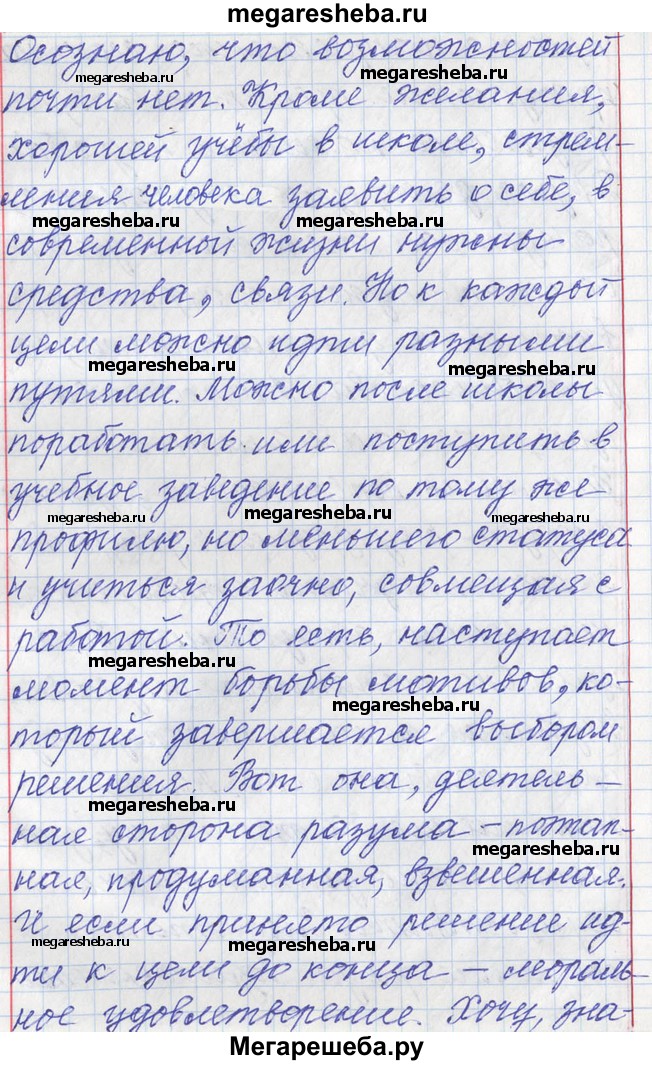 megaresheba.ru
Осознаю, что возможностей
megaresheba.ru megaresheba.ru
почти нет. Кроме желания,
хорошей учёбы в школе, стрем-
ления человека заявить о себе, в
megaresheba.ru megaresheba.ru
современной жизни нужны
средства, связи. Но к каждой
цели можно идти разными
megaresheba.ru megaresheba.ru
путями. Можно после школы
поработать или поступить в
учебное заведение по тому же
megaresheba.ru megaresheba.ru megaresheba.ru
профилю, но меньшего статуса
и учиться заочно, совмещая с
работой. То есть, наступает
megaresheba.ru
момент борьбы мотивов, ко-
megaresheba.ru
торый завершается выбором
решения. Вот она, деятель-
megaresheba.ru
ная сторона разума – поэтап-
megaresheba.ru
ная, продуманная, взвешенная.
И если принято решение ид-
megaresheba.ru megaresheba.ru
ти к цели до конца – мораль-
ное удовлетворение. Хочу, зна-
Мегарешеба.ру